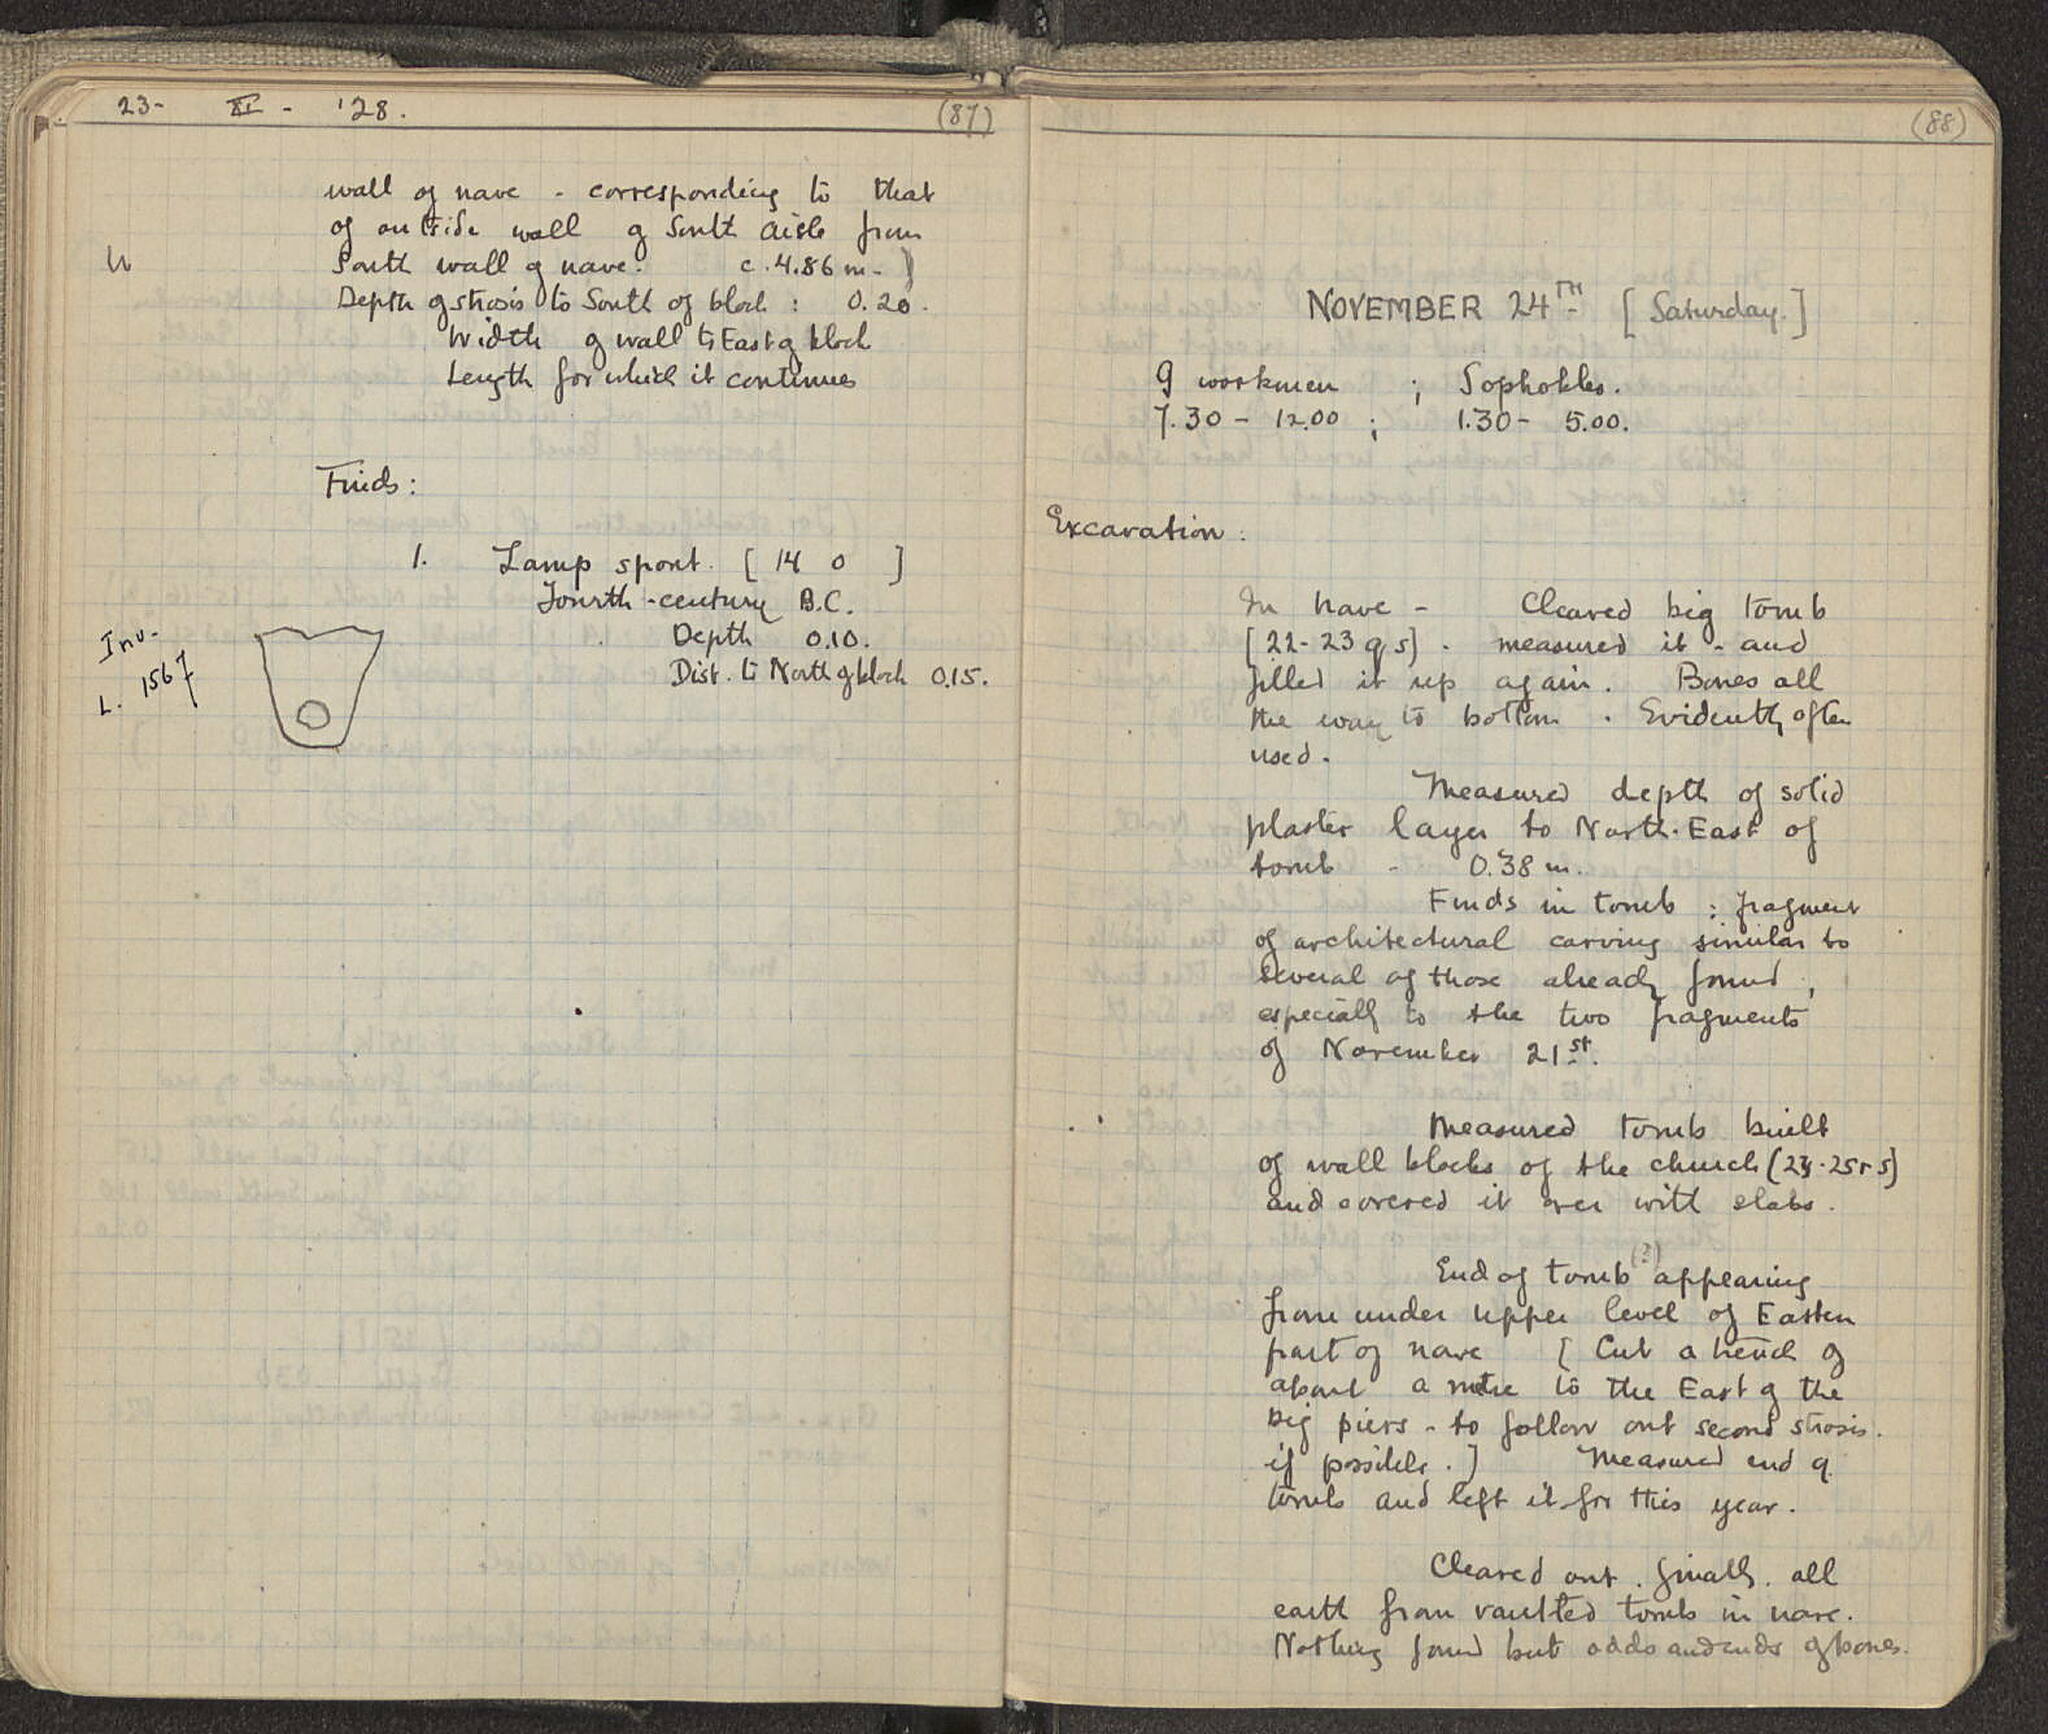 23- XI - '28.
(87)
wall of nave - corresponding to that
of outside wall of South aisle from
South wall of nave. c. 4.86 m-)
Depth of strosis to South of block : 0.20.
Width of wall to East of block
Length for which it continues
Finds:
1. Lamp spout. [ 14 0 ]
Fourth-century B.C.
Depth 0.10.
Dist. to North of block 0.15.
Inv.
L. 1567
(88)
NOVEMBER 24TH [Saturday.]
9 workmen ; Sophokles.
7.30 - 12.00 ; 1.30 - 5.00.
Excavation :
In nave - Cleared big tomb
[22-23 q, s] . measured it - and
filled it up again. Bones all
the way to bottom . Evidently often
used.
Measured depth of solid
plaster layer to North-East of
tomb - 0.38 m.
Finds in tomb : fragment
of architectural carving similar to
several of those already found ,
especially to the two fragments
of November 21st.
Measured tomb built
of wall blocks of the church (24-25 r s)
and covered it over with slabs.
End of tomb (?) appearing
from under upper level of Eastern
part of nave [Cut a trench of
about a metre to the East of the
big piers - to follow out second strosis.
if possible.] Measured end of
tomb and left it for this year.
Cleared out . finally . all
earth from vaulted tomb in nave.
Nothing found but odds and ends of bones.